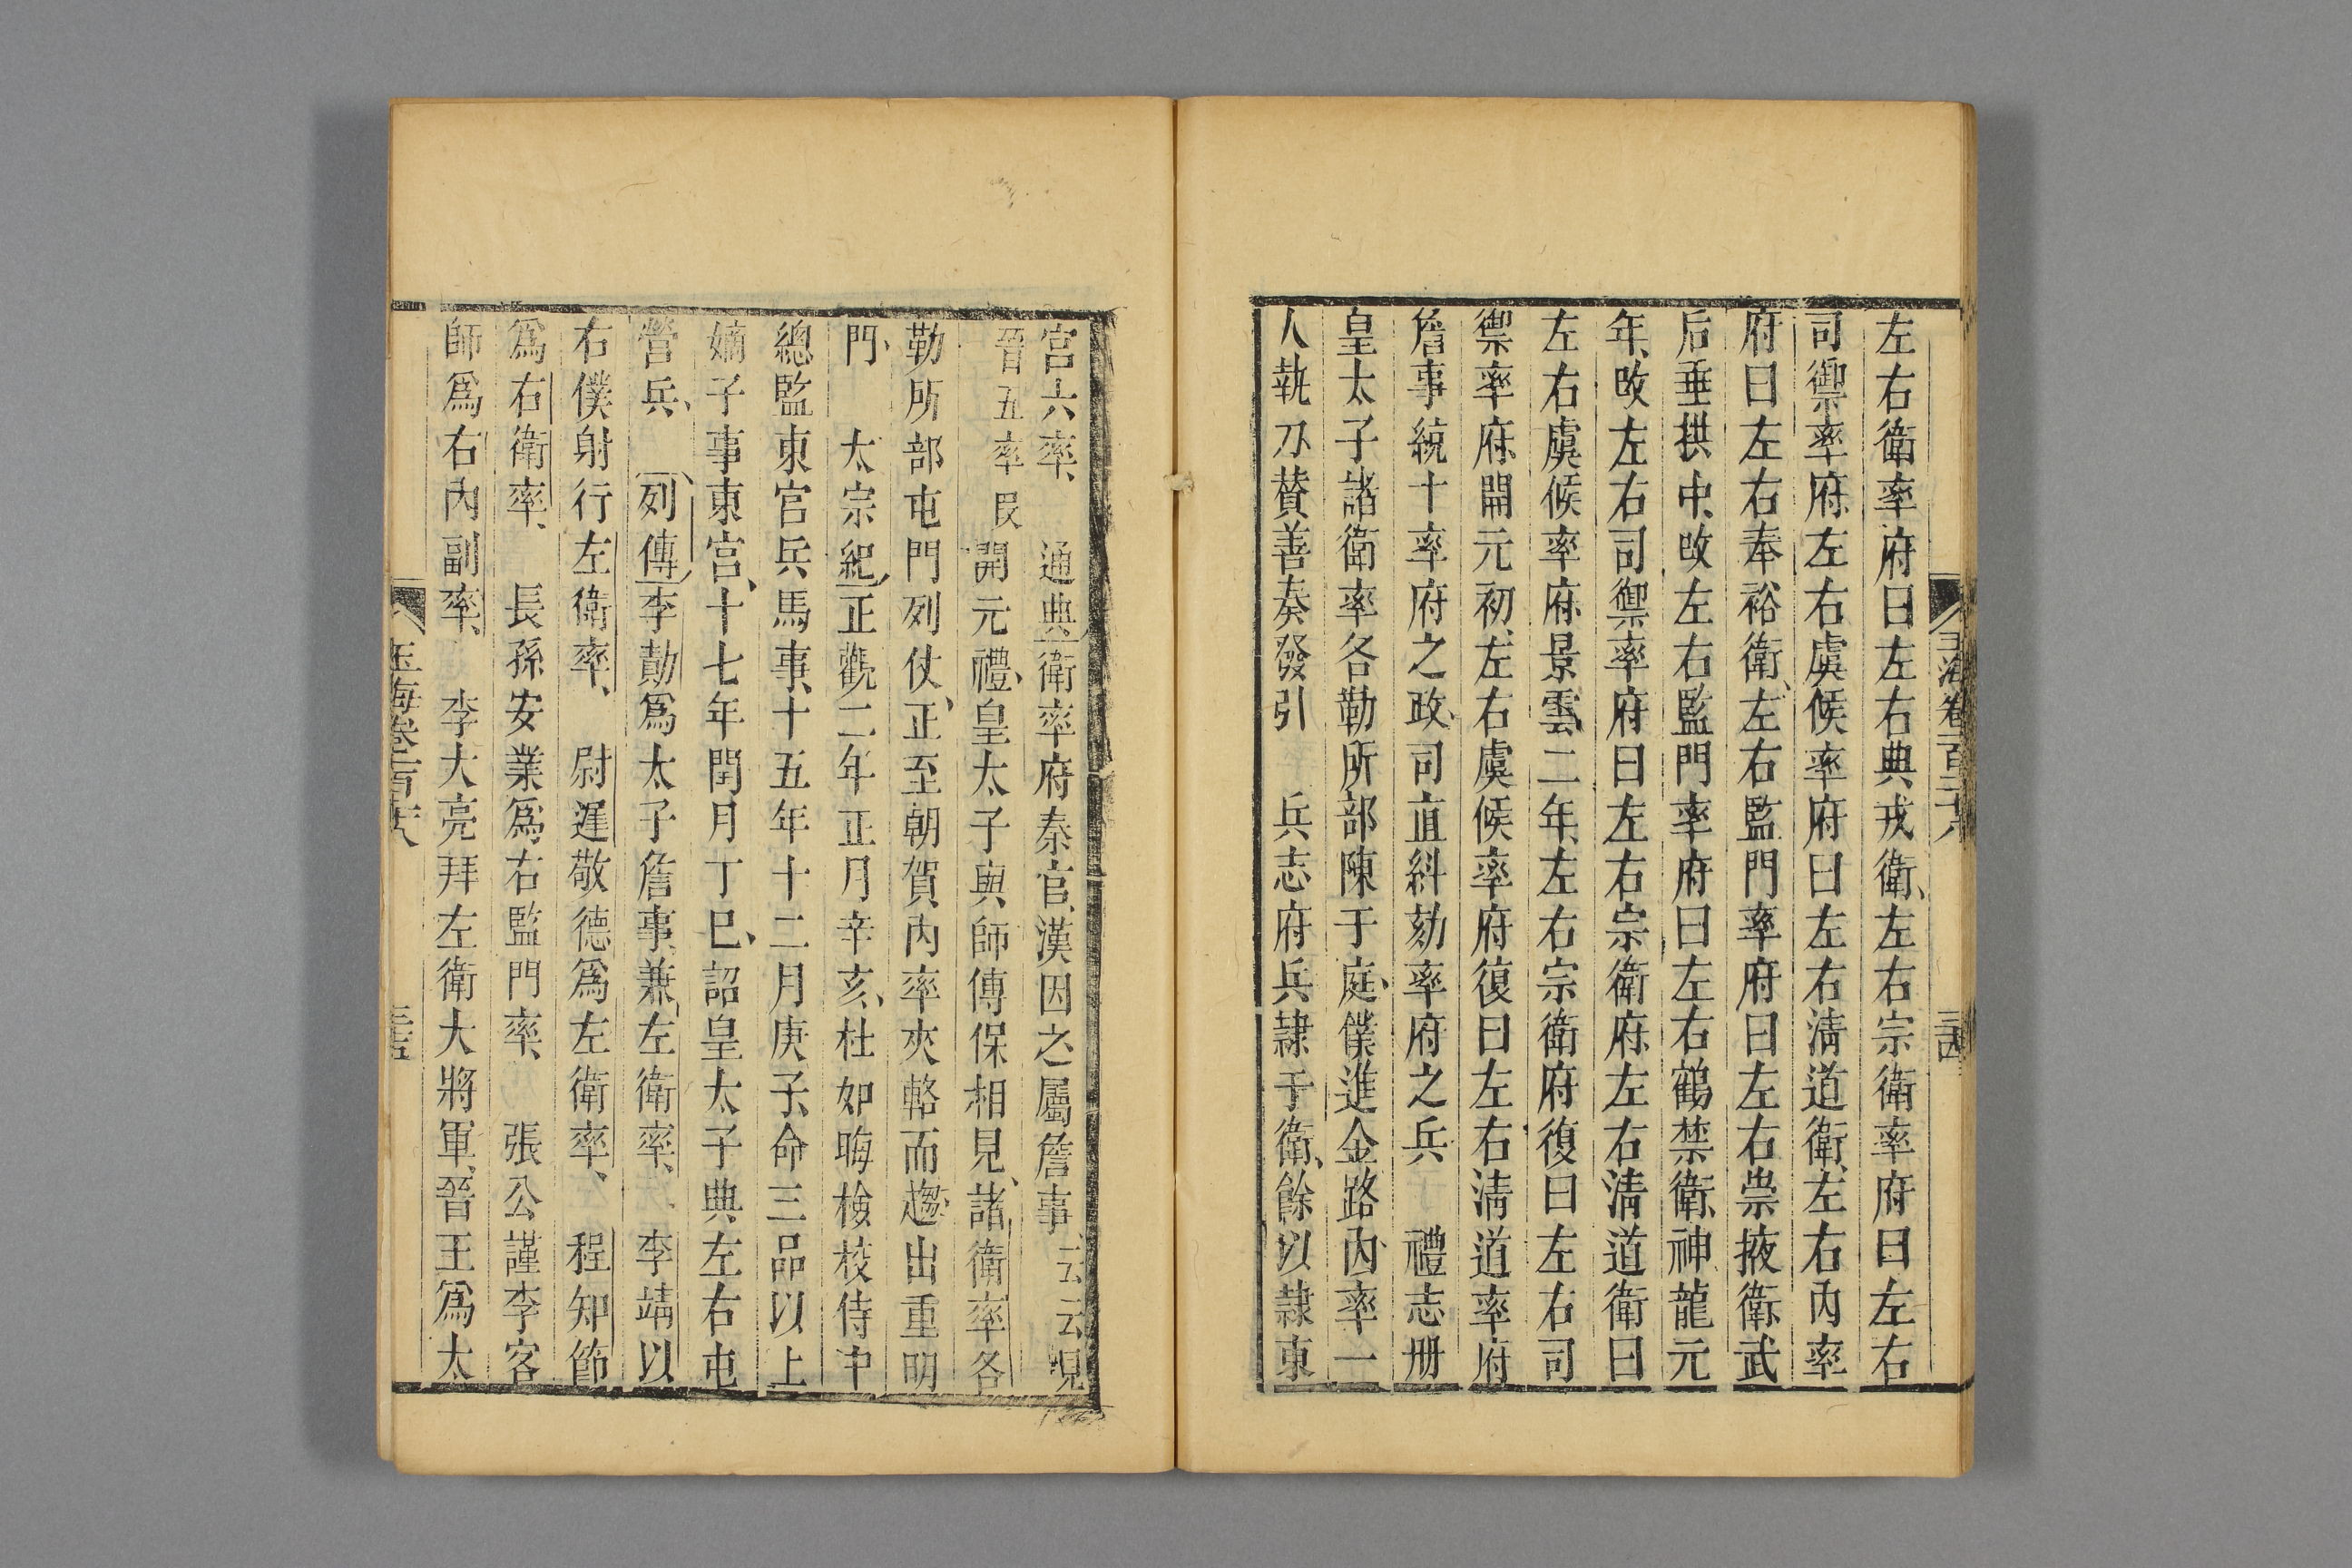 左右衛率府曰左右典戎衛左右宗衛率府曰左右
司禦率府左右虞候率府曰左右清道衛左右內率
府曰左右奉裕衛左右監門率府曰左右崇掖衛武
后垂拱中改左右監門率府曰左右鶴禁衛神龍元
年改左右司禦率府曰左右宗衛府左右清道衛曰
左右虞候率府景雲二年左右宗衛府復曰左右司
禦率府開元初左右虞候率府復曰左右清道率府
詹事統十率府之政司直糾劾率府之兵　禮志冊
皇太子諸衛率各勒所部陳于庭僕進金路內率一
人執刀贊善奏發引　兵志府兵隸于衛餘以隸東
宮六率　通典衛率府秦官漢因之屬詹事云云見
晉五率叚開元禮皇太子與師傅保相見諸衛率各
勒所部屯門列仗正至朝賀內率夾輅而趨出重明
門　太宗紀正觀二年正月辛亥杜如晦檢校侍中
總監東宮兵馬事十五年十二月庚子命三品以上
嫡子事東宮十七年閏月丁巳詔皇太子典左右屯
營兵　列傳李勣爲太子詹事兼左衛率　李靖以
右僕射行左衛率　尉遲敬德爲左衛率　程知節
爲右衛率　長孫安業爲右監門率　張公謹李客
師爲右內副率　李大亮拜左衛大將軍晉王爲太